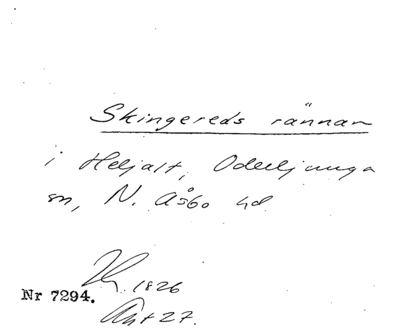 Skingereds rännan
i Heljalt, Oderljunga
sn, N. Åsbo hd
1826
Nr 7294.
Ant 27.